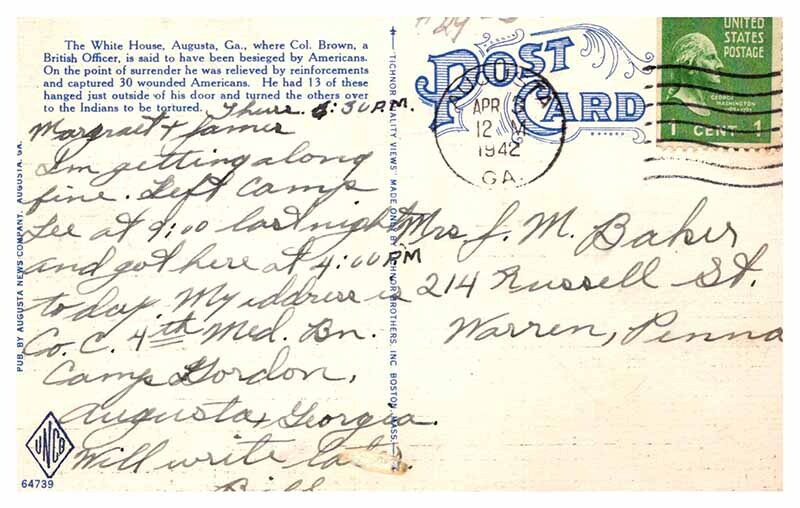 The White House, Augusta, Ga., where Col. Brown, a
British Officer, is said to have been besieged by Americans.
On the point of surrender he was relieved by reinforcements
and captured 30 wounded Americans. He had 13 of these
hanged just outside of his door and turned the others over
to the Indians to be tortured.
Thurs. 6:30 P.M.
Margrait + James
I'm getting along
fine. Left Camp
Lee at 9:00 last night
and got here at 4:00 PM
today. My address is
Co. C. 4th Med. Bn.
Camp Gordon,
Augusta, Georgia.
Will write
Bill
PUB. BY AUGUSTA NEWS COMPANY, AUGUSTA, GA.
UNCO
64739
"TICHNOR QUALITY VIEWS" MADE ONLY BY TICHNOR BROTHERS, INC. BOSTON, MASS.
POST
CARD
AUGUSTA
APR 3
12 M
1942
GA.
UNITED
STATES
POSTAGE
GEORGE
WASHINGTON
1 CENT 1
Mrs J. M. Baker
214 Russell St.
Warren, Penna